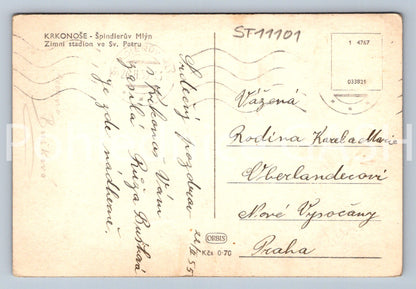 KRKONOŠE - Špindlerův Mlýn
Zimní stadion ve Sv. Petru
ST11101
1 4767
033821
Srdečný pozdrav
s Krkonoš Vám
zasílá Růža Bušková
je zde nádherně.
22/II 55
Vážená
Rodina Karel a Marie
Oberlanderovi
Nové Vysočany
Praha
ORBIS
Kčs 0·70